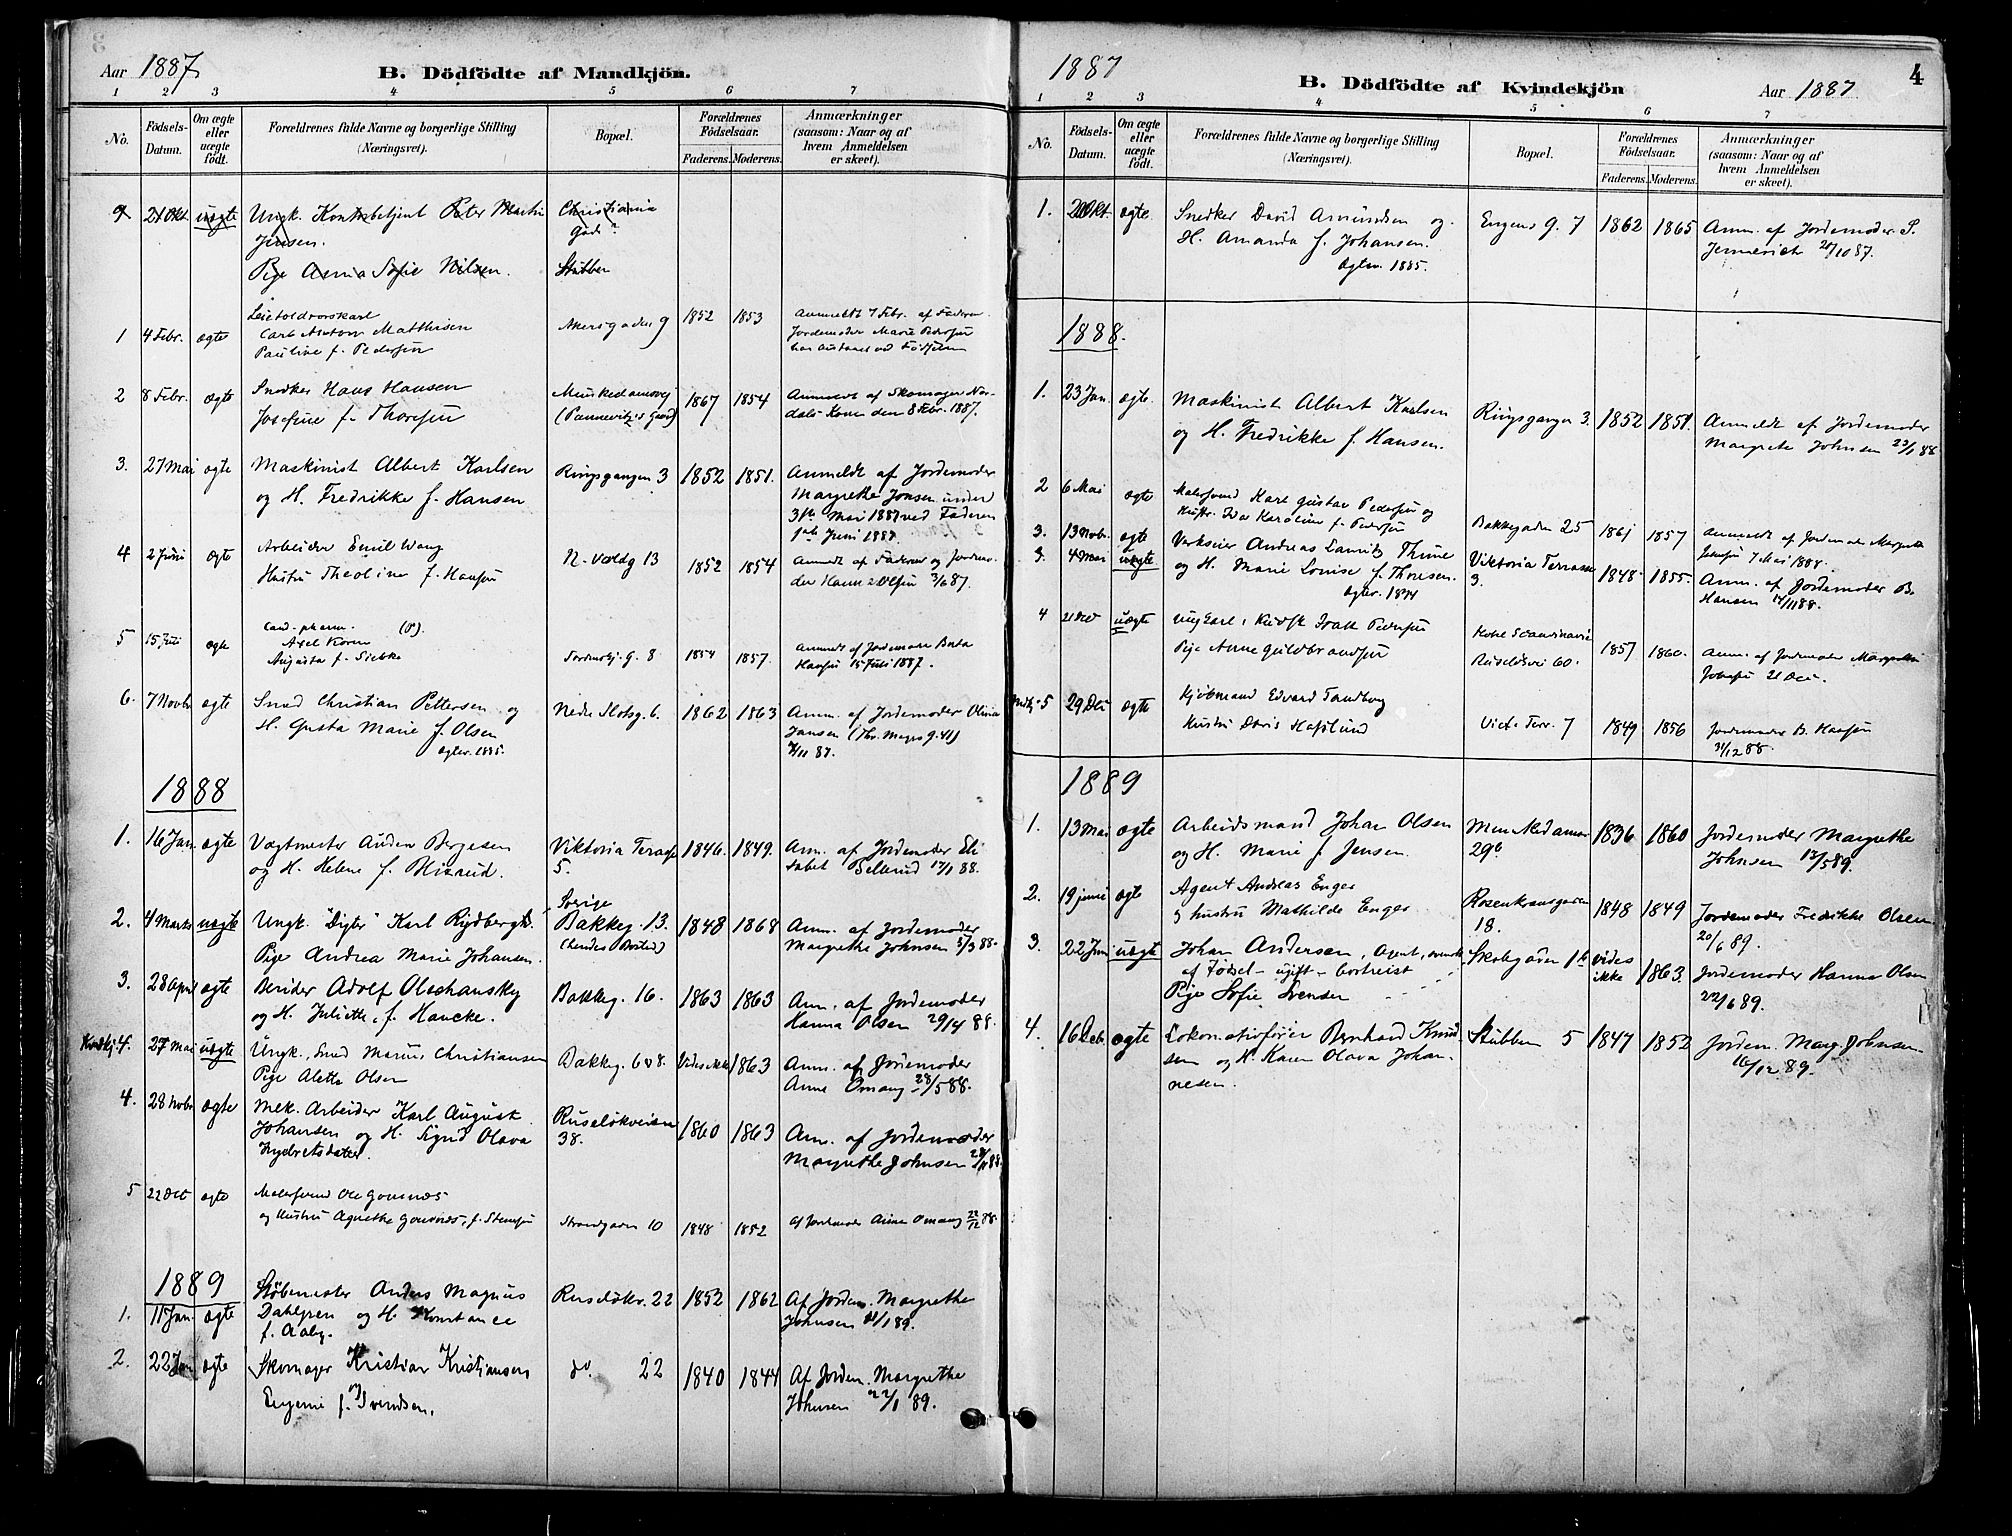 Aar 1887.
B. Dödfödte af Mandkjön.
1 2 3 4 5 6 7
No.
Fødsels-Datum.
Om ægte eller uægte født.
Forældrenes fulde Navne og borgerlige Stilling (Næringsvei).
Bopæl.
Forældrenes Födselsaar.
Faderens. Moderens.
Anmærkninger (saasom: Naar og af hvem Anmeldelsen er skeet).
uægte Ungk. Kontorbetjent Peter Martin Christiania
Jensen. Gade?
Pige Anna Sofie Nilsen. Stubben
1 4 Febr. ægte
Carl Anton Matthisen Akersgaden 9 1852 1853 Anmeldt 7 Febr. af Faderen.
Pauline f. Pedersen Jordemoder Marie Pedersen
2 8 Febr. ægte Snedker Hans Hansen
Josefine f. Thoresen 1867 1854 Anmeldt af Skomager
Kone den 8 Febr. 1887.
3. 27 Mai ægte Maskinist Albert Karlsen Ringsgangen 3 1852 1851. Anmeldt af Jordemoder
og H. Fredrikke f. Hansen Margrethe Jonsen under
Mai 1887 ved Faderen
Juni 1887.
4 2 Juni ægte Arbeider Emil Wang
Hustru Theoline f. Hansen N. Voldg 13 1852 1854 Anmeldt af Faderen og Jordemo-
der Hanna Olsen 3/6 87.
5 15 Juli ægte Cand. pharm.
Axel
Augusta f. Siebke 8 1854 1857. Anmeldt af Jordemoder Berta
Hansen 15 Juli 1887.
6. 7 Novbr ægte Smed Christian Pettersen og Nedre Slotsg. 6. 1862 1863 Anm. af Jordemoder Olivia
H. Gusta Marie f. Olsen Jansen (Th. Meyers g. 41)
Ægtev. 1885. /11 87.
1888
1. 16 Jan ægte Vagtmester Anden Bergesen Viktoria Terasse 1846. 1849. Anm. af Jordemoder Eli-
og H. Helene f. Risrud. 5. sabet Sellerud 17/1 88.
2. 4 Marts uægte Ungk. "Digter" Karl Rydbergh. Sverige
Bakkeg. 13. 1848 1868 Anm. af Jordemoder
Pige Andrea Marie Johansen. (hendes Bosted) Margrethe Johnsen 5/3 88.
3. 28 April ægte Berider Adolf Olschansky Bakkeg. 16. 1863 1863 Anm. af Jordemoder
og H. Juliette, f. Hancke. Hanna Olsen 29/4 88.
Kvindkj. 4. 27 Mai uægte Ungk. Smed Marius Christiansen Bakkeg. 6 v 8. Vides ikke 1863 Anm. af Jordemoder
Pige Alette Olsen Anne Omang 28/5 88.
4. 28 Novbr ægte Mek. Arbeider Karl August Ruseløkveien 1860 1863 Anm. af Jordemoder
Johansen og H. Sigrid Olava 38. Margrethe Johnsen 28/11 88.
5 22 Dec ægte Malersvend Ole Gomnæs
og Hustru Agnethe Gomnæs, f. Strandgaden 10 1848 1852 Af Jordemoder Anne Omang 22/12 88.
1889
1. 11 Jan. ægte Støbemester Anders Magnus Ruseløkv. 22 1852 1862 Af Jordem. Margrethe
Dahlgren og H. Konstance Johnsen 11/1 89.
f. Aaby.
2. 22 Jan ægte Skomager Kristian Kristiansen do. 22 1840 1844 Af Jordem. Margrethe
og Eugenie f. Svendsen. Johnsen 22/1 89.
1887
B. Dödfödte af Kvindekjön
Aar 1887
4
1 2 3 4 5 6 7
No.
Födsels-Datum.
Om ægte eller uægte födt.
Forældrenes fulde Navne og borgerlige Stilling (Næringsvei).
Bopæl.
Forældrenes Födselsaar.
Faderens. Moderens.
Anmærkninger (saasom: Naar og af hvem Anmeldelsen er skeet).
1. 20 Okt. ægte Snedker David Amundsen og Engens g. 7 1862 1865 Anm. af Jordemoder S.
H. Amanda f. Johansen. 20/10 87.
Ægtev. 1885.
1888.
1. 23 Jan. ægte. Maskinist Albert Karlsen Ringsgangen 3. 1852 1851. Anmeldt af Jordemoder
og H. Fredrikke f. Hansen. Margrete Johnsen 23/1 88
2 6 Mai ægte Malersvend Karl Gustav Pedersen og
Hustr. Ida Karoline f. Pedersen Bakkegaden 25 1861 1857 Anmeldt af Jordemoder Margrethe
Johnsen 7 Mai 1888.
3. 13 Novbr. ægte Verkseier Andreas Lauritz Thune Viktoria Terrasse 1848. 1855. Anm. af Jordemoder B.
3. 4 Mai uægte og H. Marie Louise f. Thoresen. 3. Hansen 14/11 88.
Ægtev. 1874
4 21 Dec uægte Ungkarl, Pedersen Hotel Scandinavie
Pige Anne Guldbrandsen Ruseløkvei 60. 1857 1860. Anm. af Jordemoder Margrethe
Johnsen 21 Dec.
5 29 Dec ægte Kjøbmand Edvard Tandberg
Hustru Doris Hafslund Vict. Terr. 7 1849 1856 Jordemoder B. Hansen
31/12 88.
1889
1. 13 Mai ægte Arbeidsmand Johan Olsen Munkedamsv 1836 1860 Jordemoder Margrethe
og H. Marie f. Jensen. 29b Johnsen 13/5 89.
2. 19 juni ægte Agent Andreas Enger Rosenkransgaden 1848 1849 Jordemoder Fredrikke Olsen
og hustru Mathilde Enger 18. 20/6 89.
3. 22 Juni uægte Johan Andersen, Agent, svensk Skolegaden 1b vides ikke 1863. Jordemoder Hanna Olsen
af Fødsel - ugift - bortreist 22/6 89.
Pige Sofie Svensen
4. 16 Deb. ægte Lokomotivfører Bernhard Knud- Stubben 5 1847 1852 Jordem. Marg. Johnsen
sen og H. Karen Olava Johan- 16/12 89.
nesen.